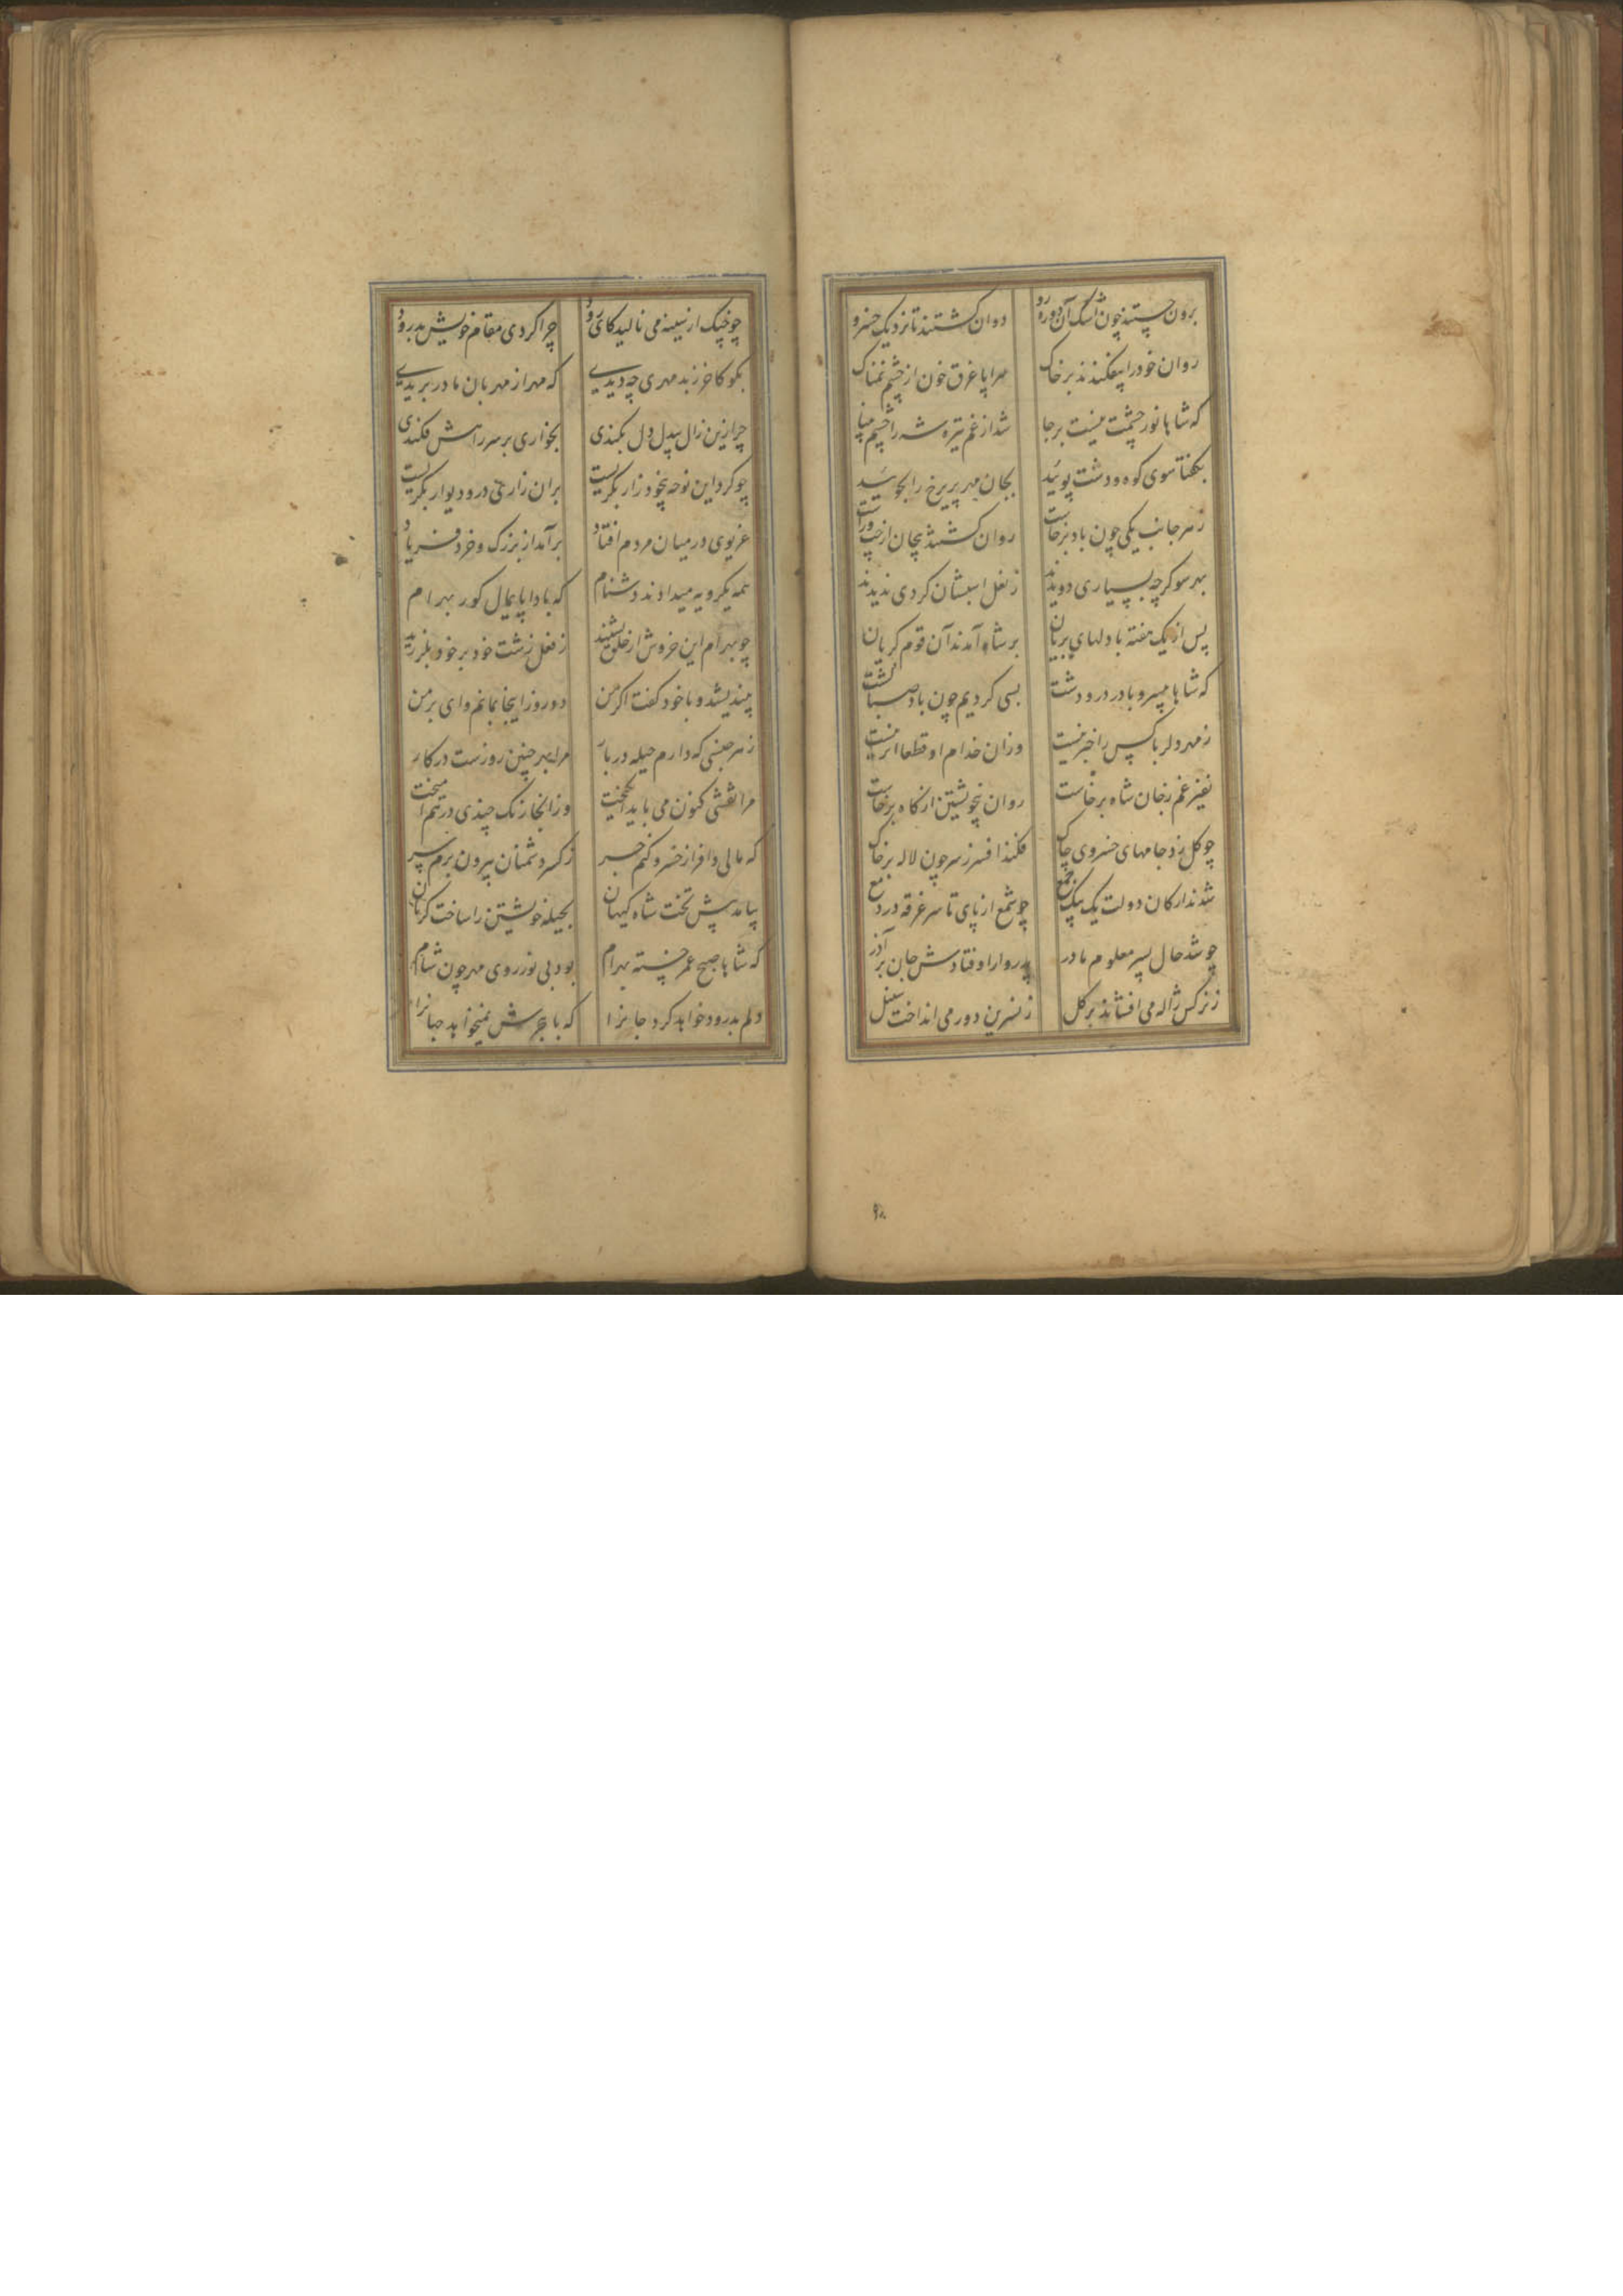 برون جستند چون اشک آن دوره رو دوان کشتند تا نزدیک خسرو
روان خود را بیفکندند بر خاک سراپا غرق خون از چشم نمناک
که شاها نور چشمت نیست بر جا شد از غم تیره شه را چشم بینا
بکفتا سوی کوه و دشت پوئید بجان مهر پریرخ را بجوئید
ز هر جانب یکی چون باد برخاست روان کشتند پیچان از چپ و راست
بهر سو کرچه بسیاری دویدند ز نعل اسبشان کردی ندیدند
پس از یک هفته با دلهای بریان بر شاه آمدند آن قوم کریان
که شاها ما بسر و بادر در و دشت بسی کردیم چون باد صبا کشت
ز مهر دلربا کس را خبر نیست وزان خدام او قطعا اثر نیست
نفیر غم ز جان شاه برخاست روان بیخویشتن از کاه برخاست
چو کل زد جامهای خسروی چاک فکند افسر ز سر چون لاله بر خاک
شدند ارکان دولت یک بیک جمع چو شمع از پای تا سر غرقه در دمع
چو شد حال پسر معلوم مادر پدروار اوفتادش جان بر آذر
ز نرکس ژاله می افشاند بر کل ز نسرین دور می انداخت سنبل
چو چنک از سینه می نالید کای رود چرا کردی مقام خویش بدرود
بکو کاخر ز بد مهری چه دیدی که مهر از مهربان مادر بریدی
چرا زین زال بیدل دل بکندی بخواری بر سر راهش فکندی
چو کرد این نوحه بیخود زار بکریست بران زاری در و دیوار بکریست
غریوی در میان مردم افتاد برآمد از بزرک و خرد فریاد
همه یکرویه میدادند دشنام که بادا پایمال کور بهرام
چو بهرام این خروش از خلق بشنید ز فعل زشت خود بر خود بلرزید
بیندیشد و با خود کفت اکر من دو روز اینجا بمانم وای بر من
ز هر جنسی که دارم حیله در بار مرا بهر چنین روزست در کار
مرا نقشی کنون می باید انکیخت وز انجا رنک چندی درهم آمیخت
که مالی وافر از خسرو کنم جر ز کسر دشمنان بیرون برم سر
بیامد پیش تخت شاه کیهان بحیله خویشتن را ساخت کریان
که شاها صبح عمر خسته بهرام بود بی نور روی مهر چون شام
دلم بدرود خواهد کرد جانرا که با هجرش نمیخواهد جهانرا
۹۸